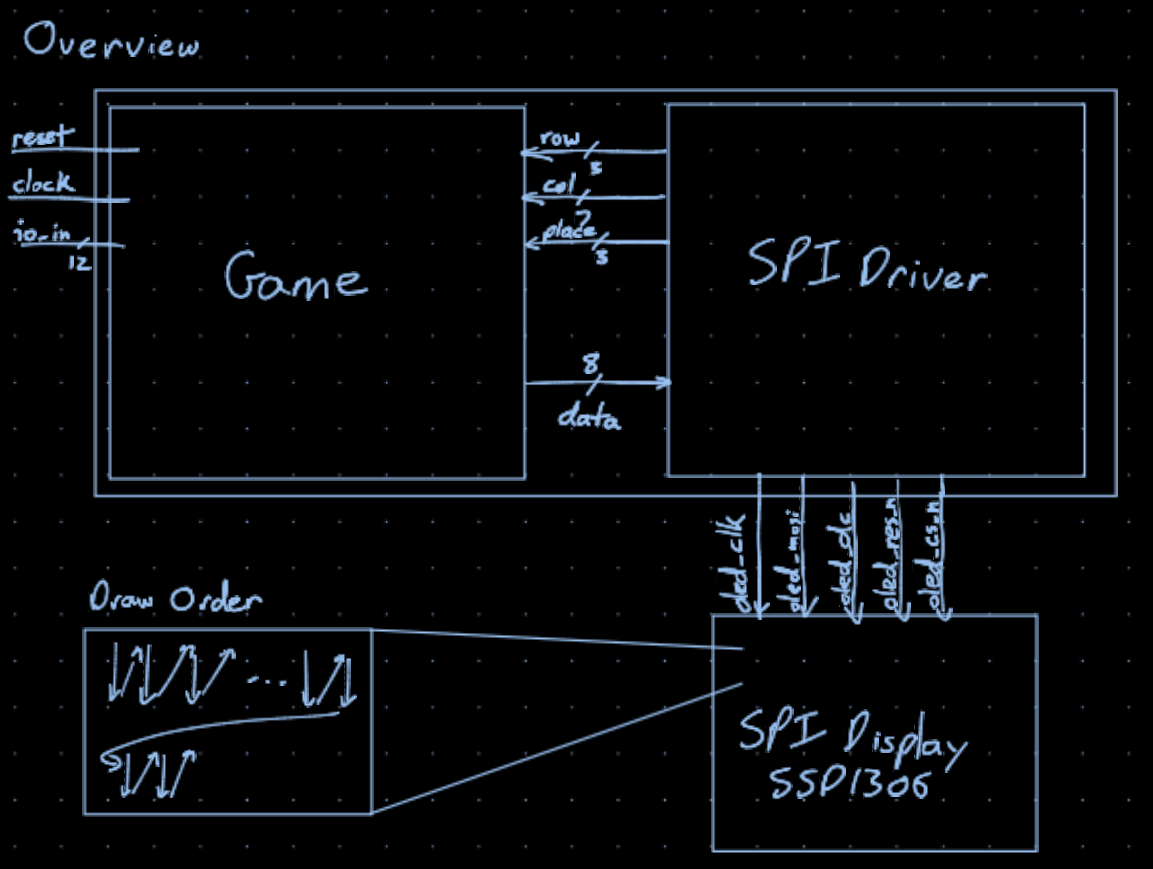 Overview
reset
clock
io_in
12
Game
row
3
col
7
place
3
8
data
SPI Driver
oled_clk
oled_mosi
oled_dc
oled_res_n
oled_cs_n
Draw Order
...
SPI Display
SSD1306